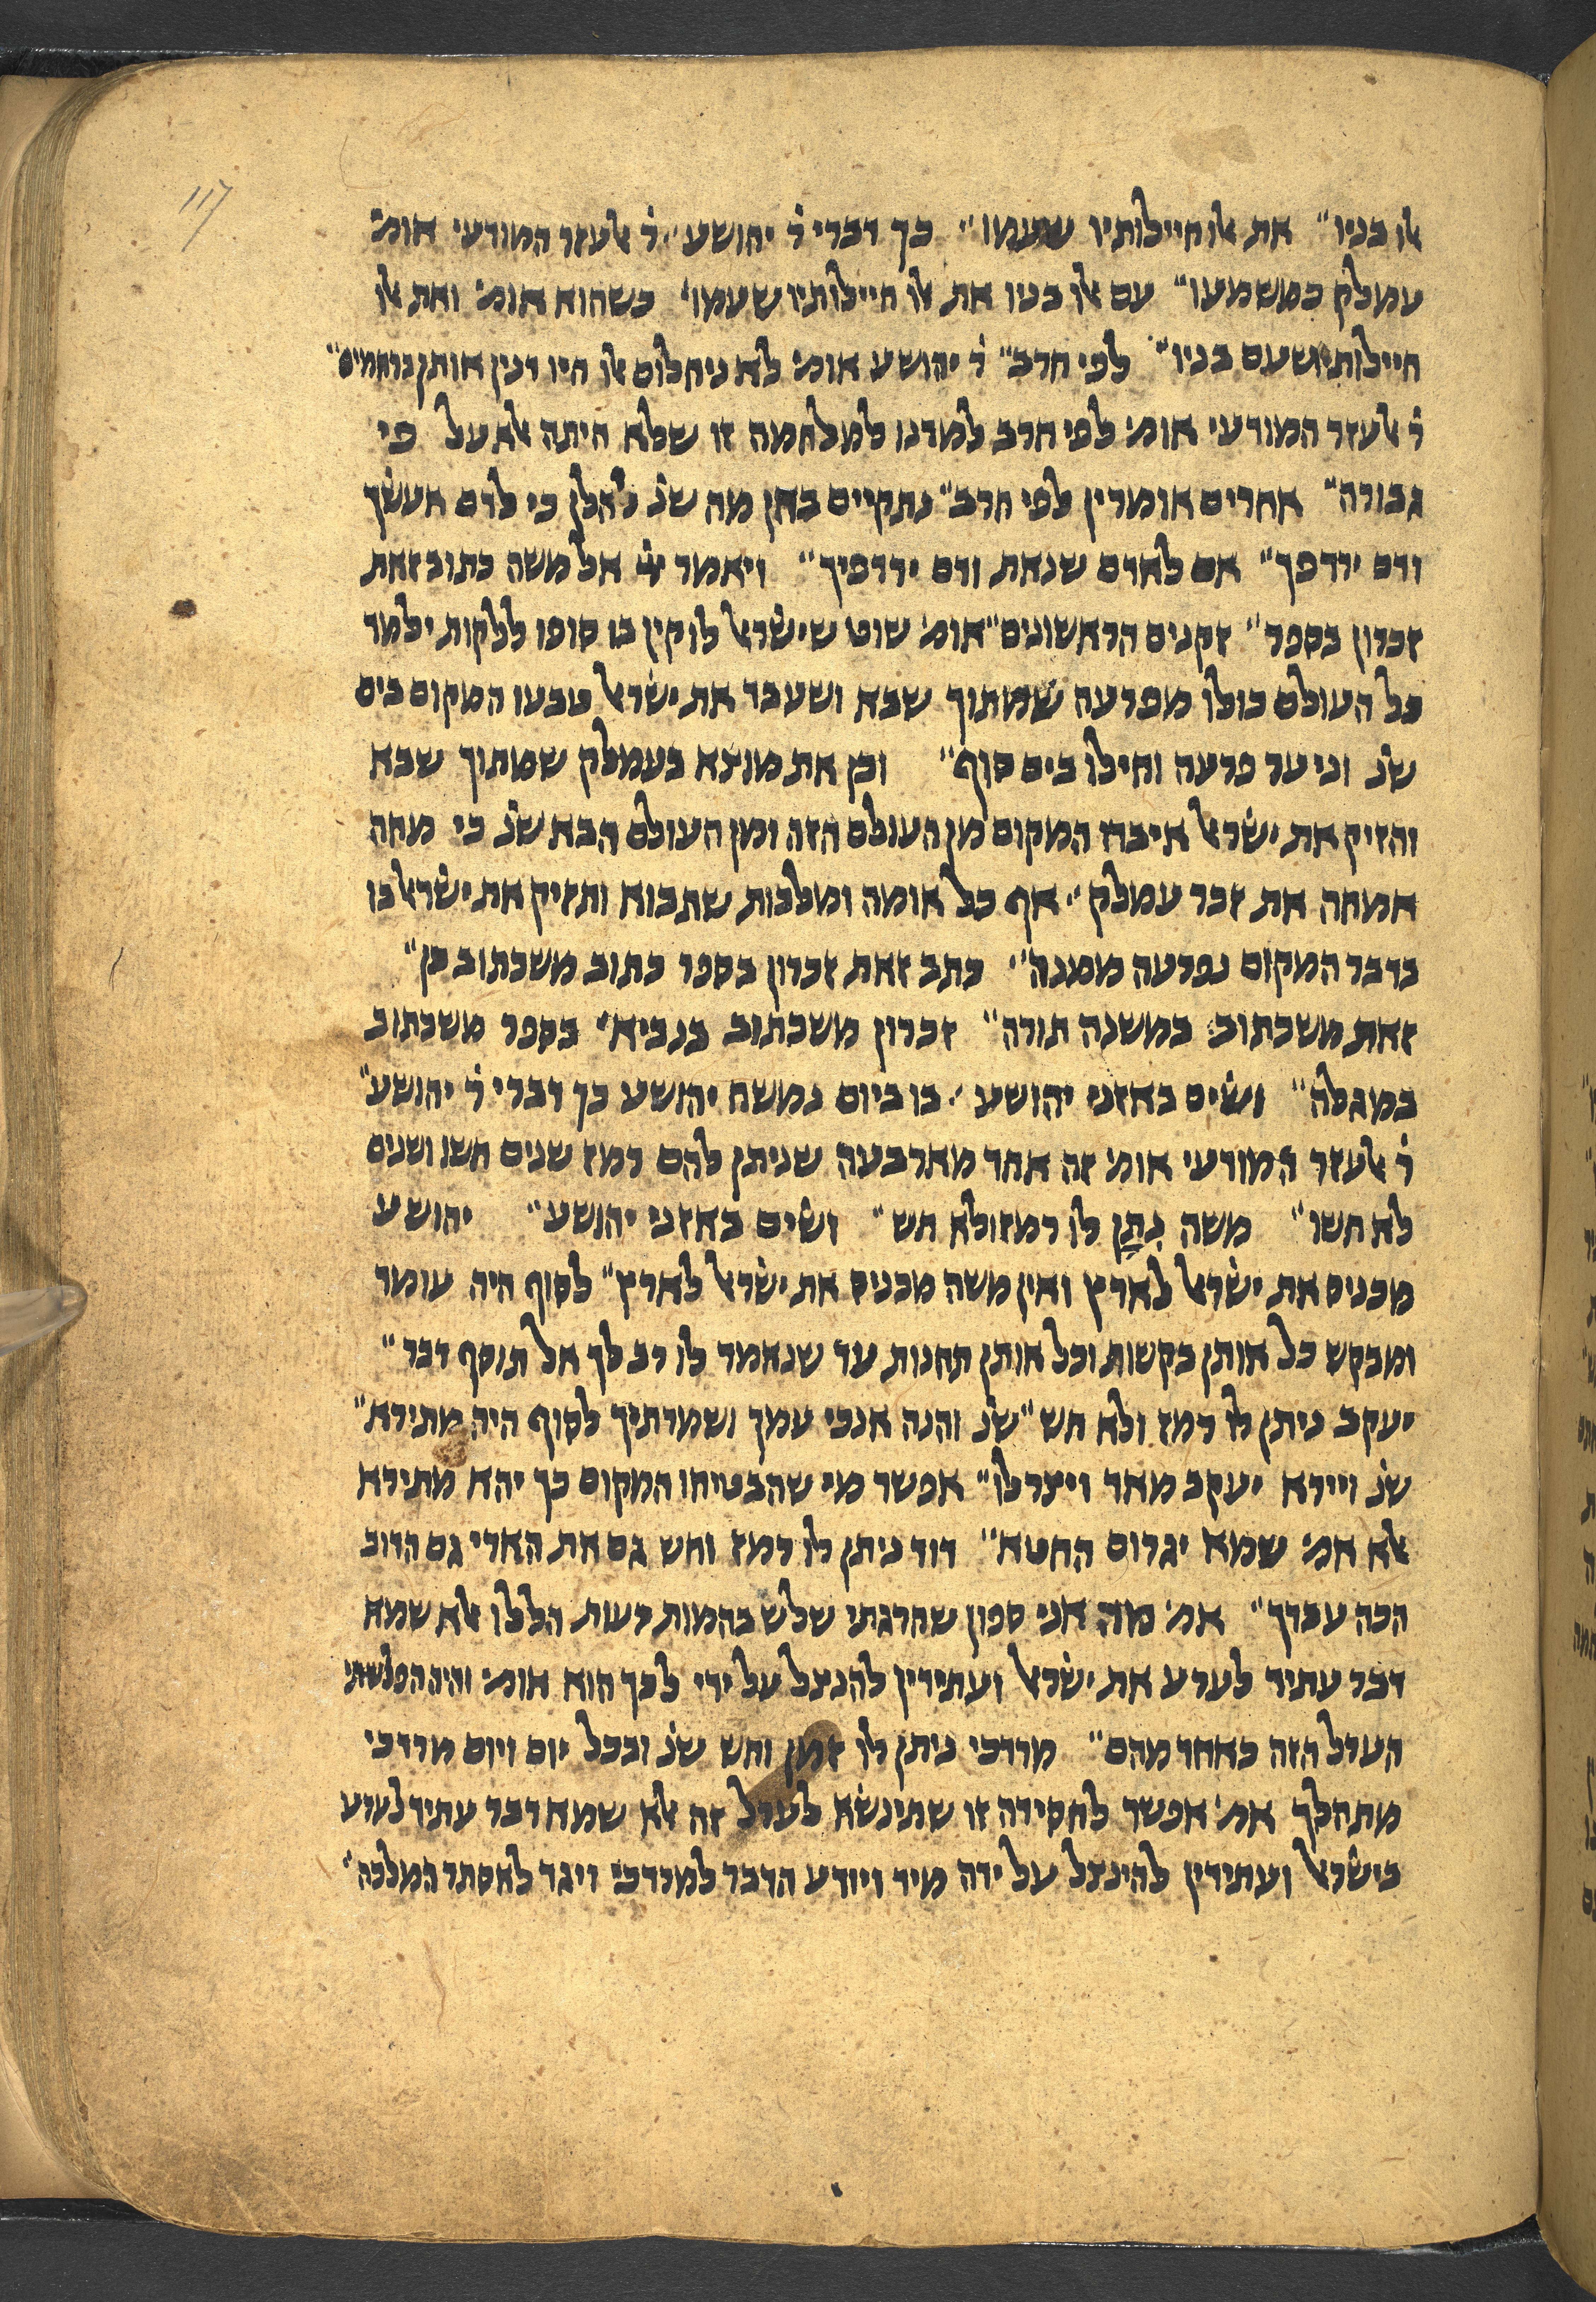 117
אלו בניו״ את אלו חיילותיו שעמו״ כך דברי ר׳ יהושע״ ר׳ אלעזר המודעי אומ׳
עמלק כמשמעו״ עם אלו בניו את אלו חיילותיו שעמו׳ כשהוא אומ׳ ואת אלו
חיילותיו שעם בניו״ לפי חרב״ ר׳ יהושע אומ׳ לא ניחלום אלו היו דנין אותן ברחמים״
ר׳ אלעזר המודעי אומ׳ לפי חרב למדנו למלחמה זו שלא היתה אלא על פי
גבורה״ אחרים אומרין לפי חרב״ נתקיים בהן מה שנ׳ להלן כי לדם אעשך
ודם ירדפך״ אם לא דם שנאת ודם ירדפיך״ ויאמר ייי אל משה כתוב זאת
זכרון בספר״ זקנים הראשונים״ אומ׳ שוט שישראל לוקין בו סופו ללקות ילמד
כל העולם כולו מפרעה שמתוך שבא ושעבד את ישראל טבעו המקום בים
שנ׳ וניער פרעה וחילו בים סוף״ וכן את מוצא בעמלק שמתוך שבא
והזיק את ישראל איבדו המקום מן העולם הזה ומן העולם הבא שנ׳ כי מחה
אמחה את זכר עמלק״ אף כל אומה ומלכות שתבוא ותזיק את ישראל בו
בדבר המקום נפרעה ממנה״ כתב זאת זכרון בספר כתוב משכתוב כן״
זאת משכתוב במשנה תורה״ זכרון משכתוב בנביא׳ בספר משכתוב
במגלה״ ושים באזני יהושע״ בו ביום נמשח יהושע כך דברי ר׳ יהושע״
ר׳ אלעזר המודעי אומ׳ זה אחד מארבעה שניתן להם רמז שנים חשו ושנים
לא חשו״ משה נתן לו רמז ולא חש״ ושים באזני יהושע״ יהושע
מכניס את ישראל לארץ ואין משה מכניס את ישראל לארץ״ לסוף היה עומד
ומבקש כל אותן בקשות וכל אותן תחנות עד שנאמר לו רב לך אל תוסף דבר״
יעקב ניתן לו רמז ולא חש״ שנ׳ והנה אנכי עמך ושמרתיך לסוף היה מתירא״
שנ׳ ויירא יעקב מאד ויצר לו״ אפשר מי שהבטיחו המקום כך יהא מתירא
אלא אמ׳ שמא יגרום החטא״ דוד ניתן לו רמז וחש גם את הארי גם הדוב
הכה עבדך״ אמ׳ מה אני ספון שהרגתי שלש בהמות רעות הללו אלא שמא
דבר עתיד לערע את ישראל ועתידין להנצל על ידי לכך הוא אומ׳ והיה הפלשתי
הערל הזה כאחד מהם״ מרדכי ניתן לו זמן וחש שנ׳ ובכל יום ויום מרדכי
מתהלך אמ׳ אפשר לחסידה זו שתינשא לערל זה אלא שמא דבר עתיד לערע
בישראל ועתידין להינצל על ידה מיד ויודע הדבר למרדכי ויגד לאסתר המלכה״